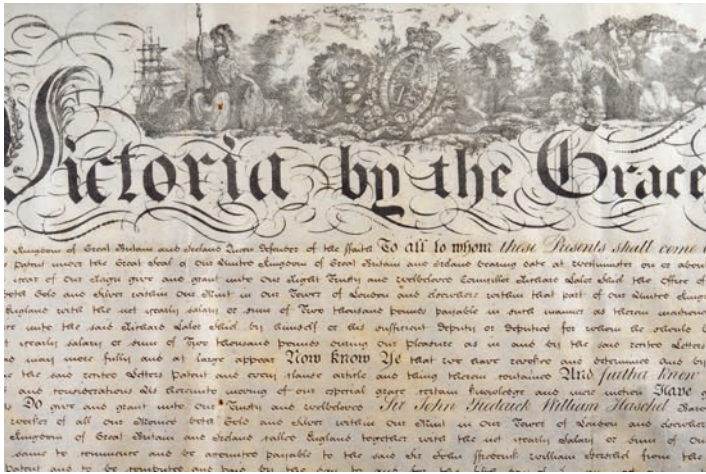 Victoria by the Grace
Kingdom of Great Britain and Ireland Queen Defender of the ffaith To all to whom these Presents shall come
Patent under the Great Seal of our United Kingdom of Great Britain and Ireland bearing date at Westminster on or about
year of Our Reign give and grant unto Our Right Trusty and welbeloved Councillor Richard Lalor Sheil the Office of
both Gold and Silver within Our Mint in our Tower of London and elsewhere within that part of our United Kingdom
England with the net yearly salary or sum of Two thousand pounds payable in such manner as therein mentioned
unto the said Richard Lalor Sheil by himself or his sufficient Deputy or Deputies for whom he should
yearly salary or sum of Two thousand pounds during our pleasure as in and by the said recited Letters
may more fully and at large appear Now Know Ye that we have revoked and determined and by
the said recited Letters Patent and every clause article and thing therein contained And further know
and considerations Us thereunto moving of our especial grace certain knowledge and mere motion Have
Do give and grant unto Our Trusty and welbeloved Sir John Frederick William Herschel
worker of all our Monies both Gold and Silver within Our Mint in Our Tower of London and elsewhere
Kingdom of Great Britain and Ireland called England together with the net yearly salary or sum of
same to commence and be accounted payable to the said Sir John Frederick William Herschel from the
Patent and to be computed and paid by the day to